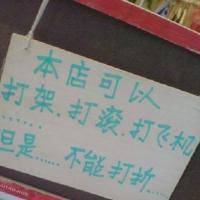 本店可以
打架.打滚.打飞机
但是……不能打折……